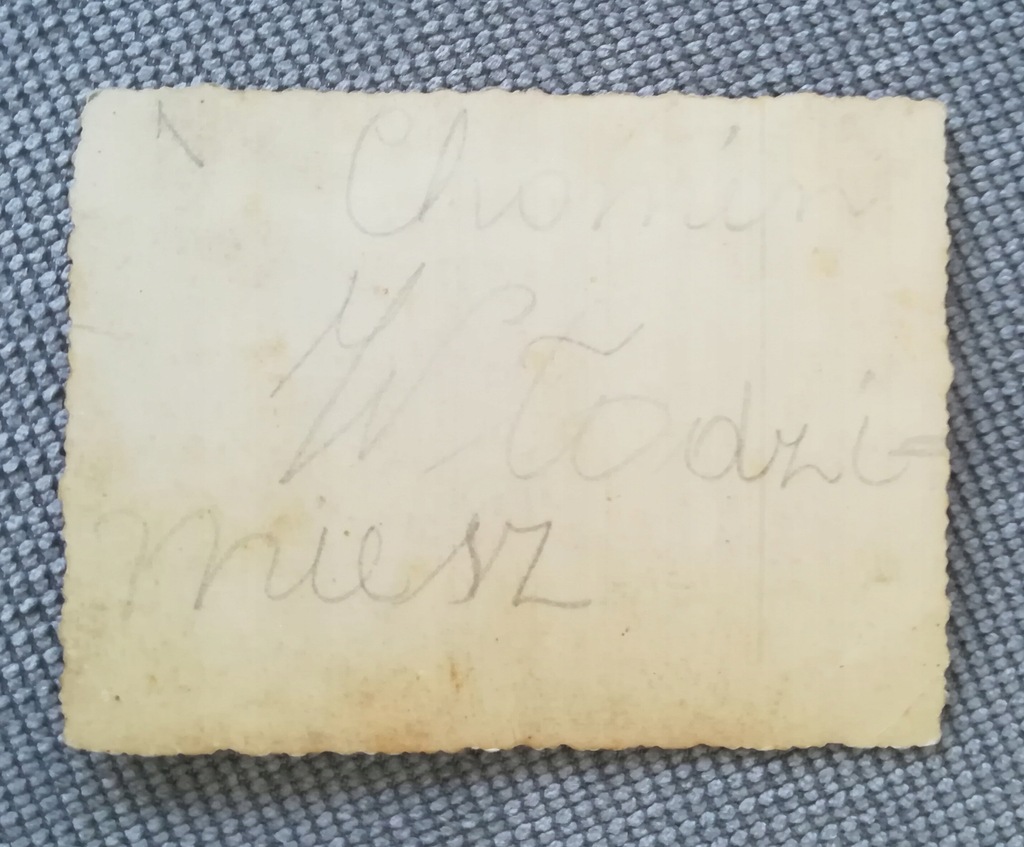 Chomin
Włodzi-
miesz